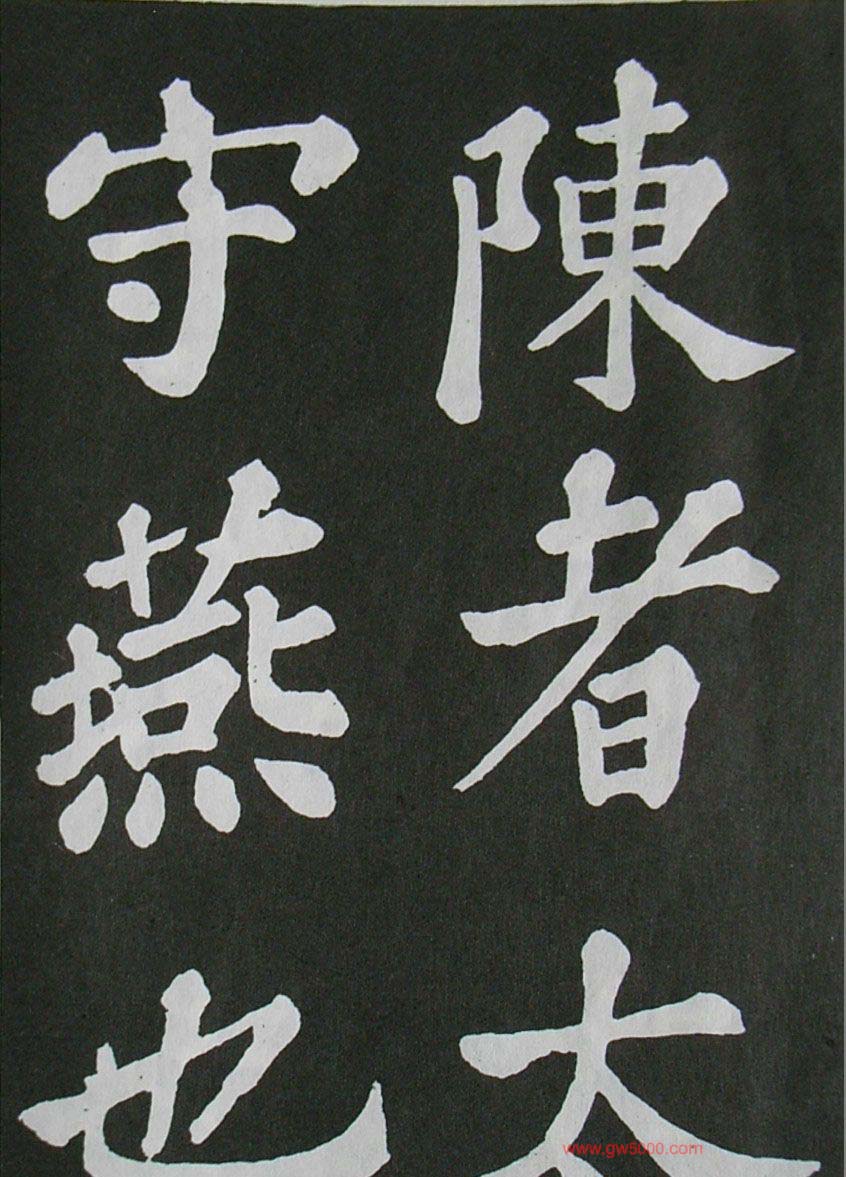 陳者太
守燕也
www.gw5000.com